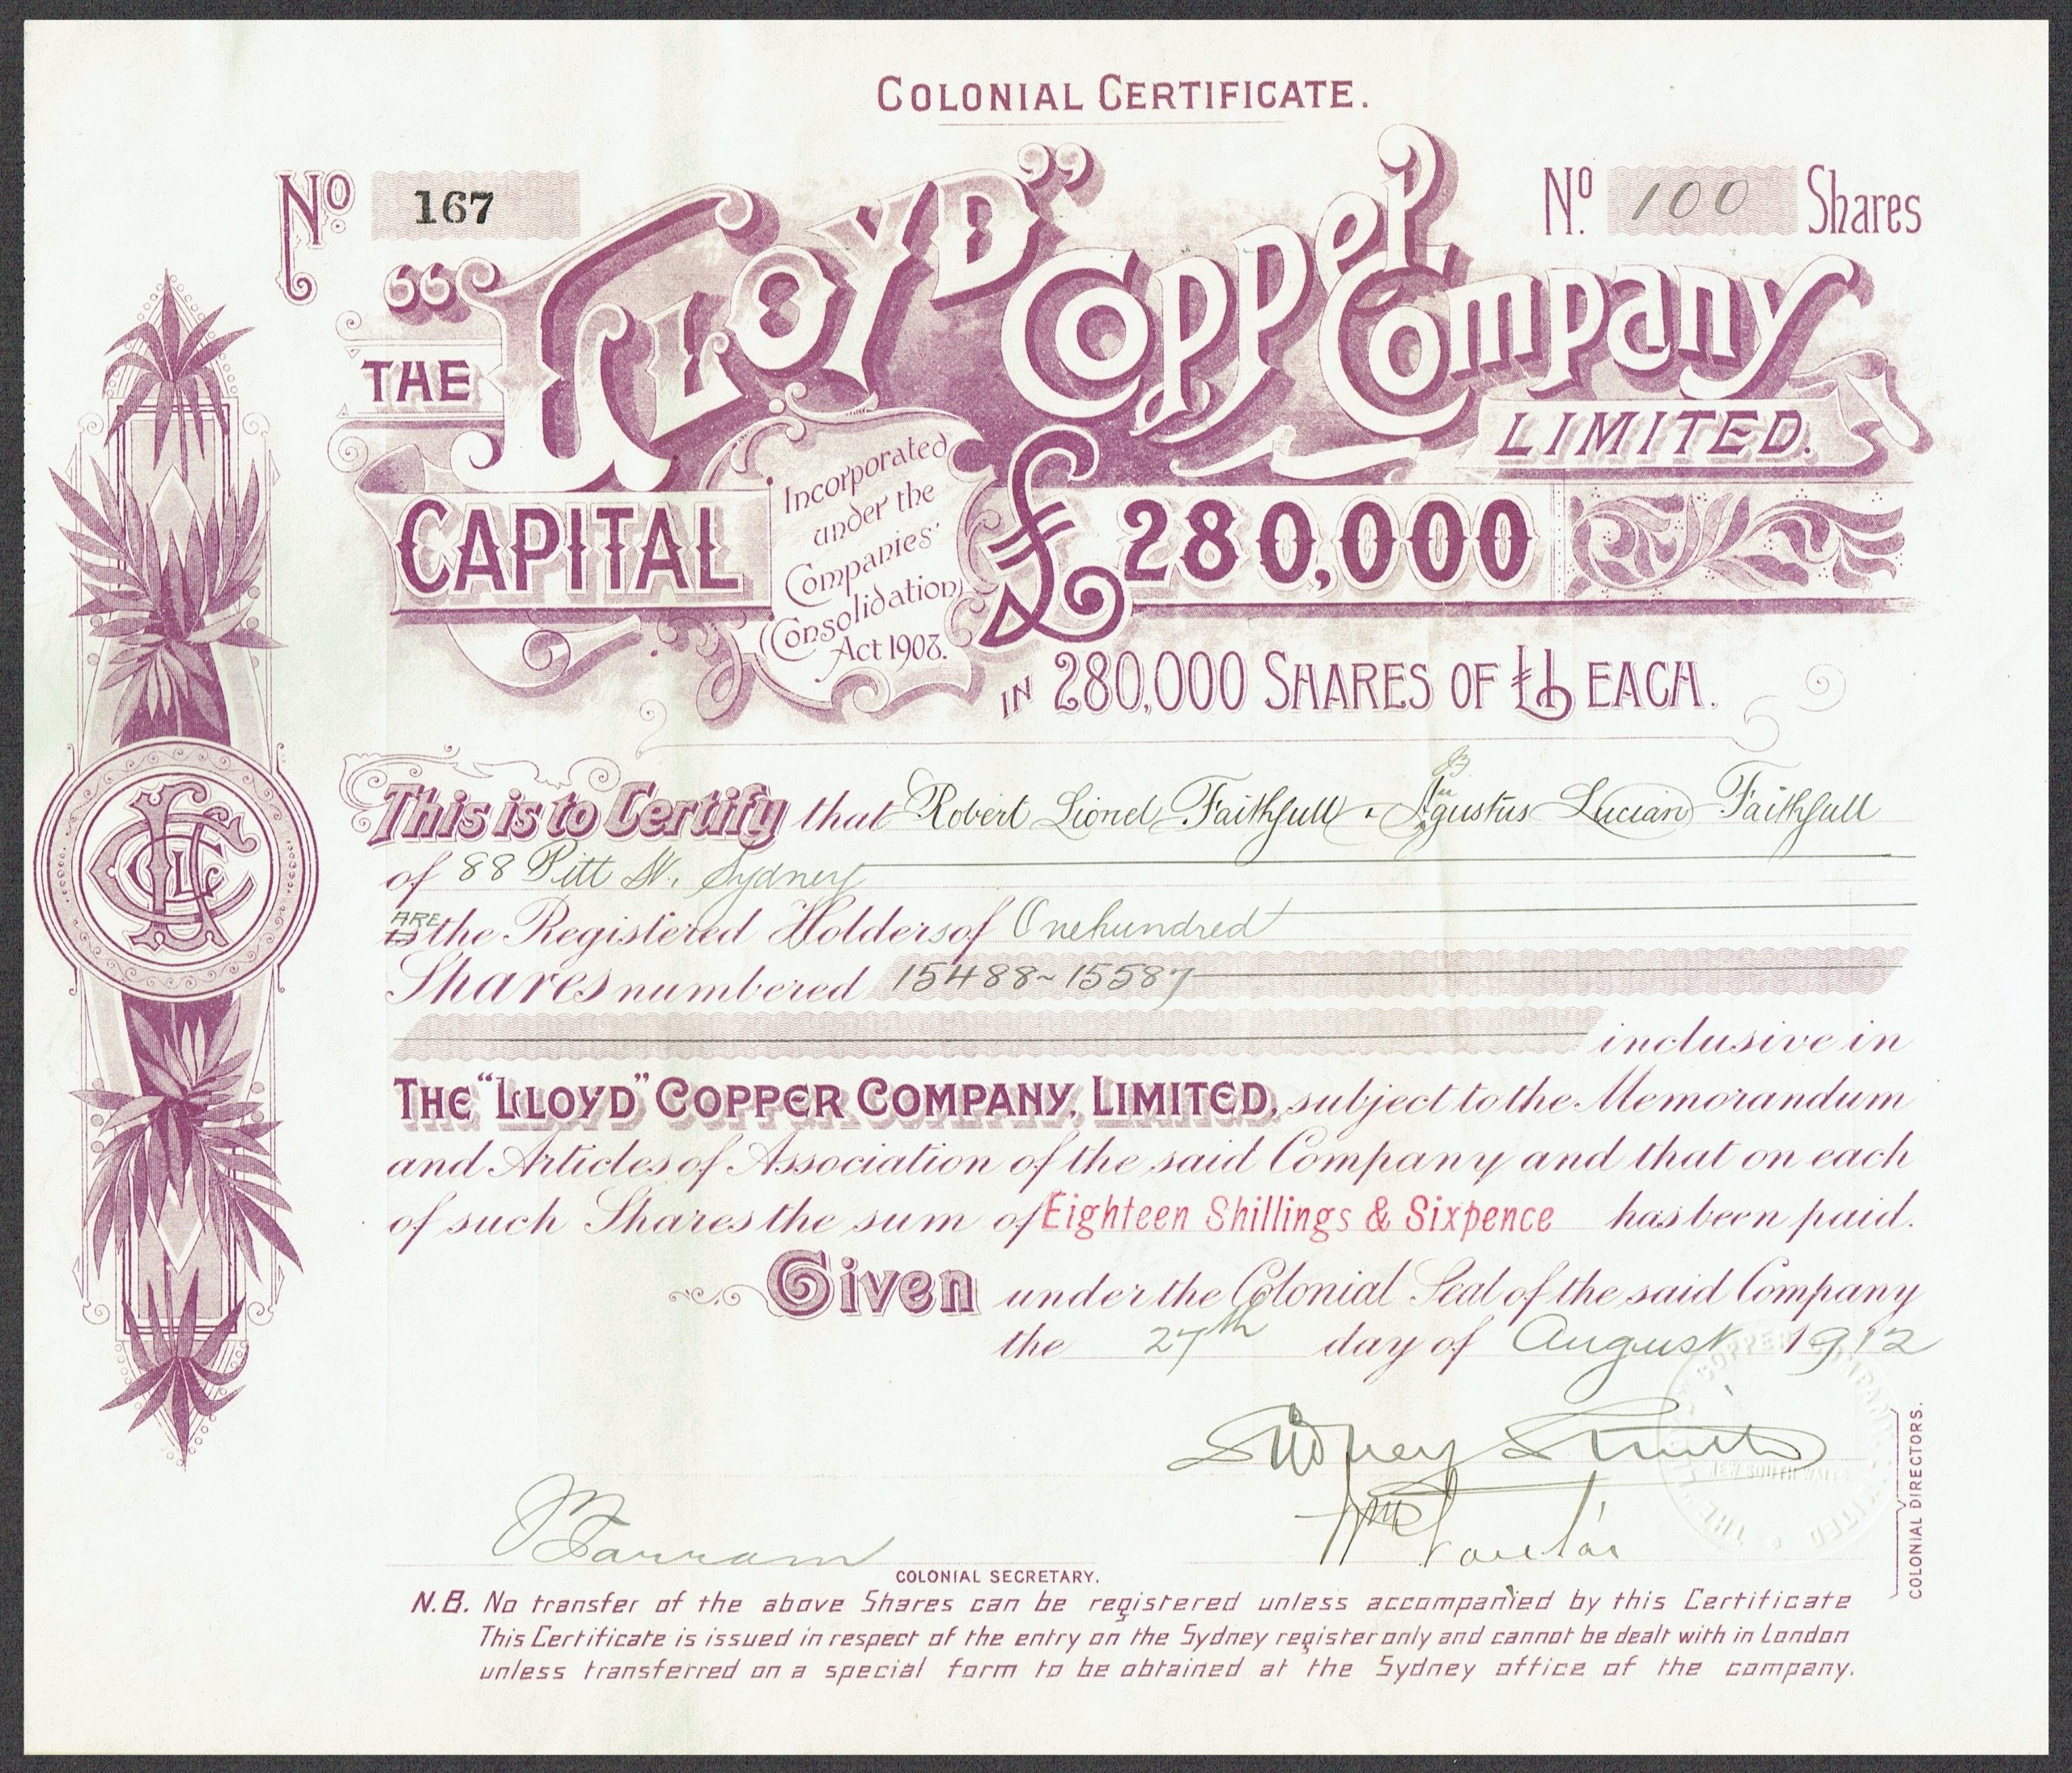 COLONIAL CERTIFICATE.
No. 167
No. 100 Shares
THE "LLOYD" COPPER COMPANY
LIMITED.
CAPITAL £280,000
Incorporated
under the
Companies'
(Consolidation)
Act 1908.
IN 280,000 SHARES OF £1 EACH.
This is to Certify that Robert Lionel Faithfull & Augustus Lucian Faithfull
of 88 Pitt St. Sydney
ARE is the Registered Holders of One hundred
Shares numbered 15488~15587
inclusive in
THE "LLOYD" COPPER COMPANY, LIMITED, subject to the Memorandum
and Articles of Association of the said Company and that on each
of such Shares the sum of Eighteen Shillings & Sixpence has been paid.
Given under the Colonial Seal of the said Company
the 27th day of August 1912
Sydney Smith
COLONIAL DIRECTORS.
COLONIAL SECRETARY.
N.B. No transfer of the above Shares can be registered unless accompanied by this Certificate
This Certificate is issued in respect of the entry on the Sydney register only and cannot be dealt with in London
unless transferred on a special form to be obtained at the Sydney office of the company.
THE "LLOYD" COPPER COMPANY LIMITED
NEW SOUTH WALES